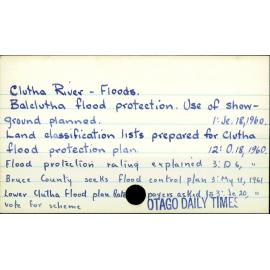 Clutha River - Floods.
Balclutha flood protection. Use of show-
ground planned. 1: Je. 18, 1960.
Land classification lists prepared for Clutha
flood protection plan. 12: O. 18, 1960.
Flood protection rating explained 3: D 6, "
Bruce County seeks flood control plan 3: My 12, 1961.
Lower Clutha Flood plan payers asked to 3: Je 20, "
vote for scheme
OTAGO DAILY TIMES